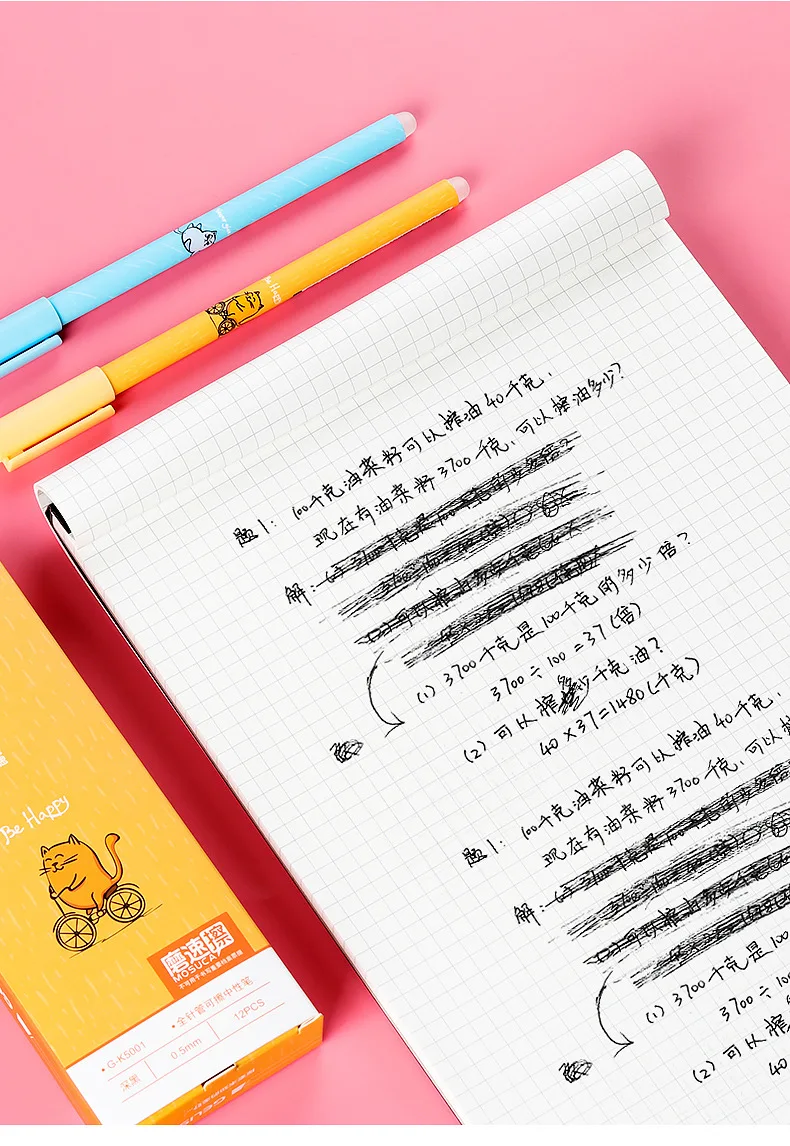 Be Happy
题1: 100千克油菜籽可以榨油40千克,
现在有油菜籽3700千克,可以榨油多少?
解:
(1) 3700千克是100千克的多少倍?
3700÷100=37(倍)
(2) 可以榨多少千克油?
40×37=1480(千克)
题1: 100千克油菜籽可以榨油40千克,
现在有油菜籽3700千克,可以榨
解:
(1) 3700千克是100
3700÷100
(2) 可以榨
40
Be Happy
磨速擦
MOSUCA
不可用于书写重要档案票据
•G-K5001 •全针管可擦中性笔
深黑 0.5mm 12PCS